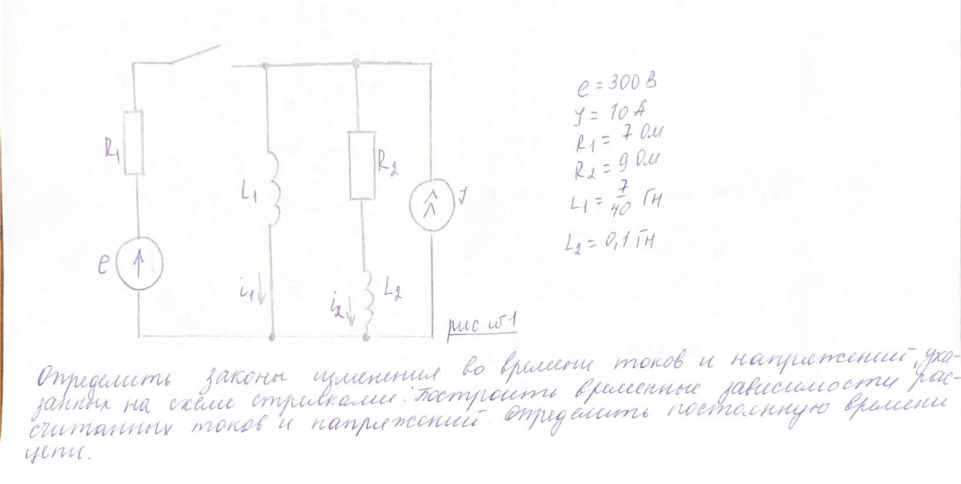 R₁
e
L₁
i₁
R₂
L₂
i₂
J
рис №1
e = 300 В
J = 10 А
R₁ = 7 Ом
R₂ = 9 Ом
L₁ = 7/40 Гн
L₂ = 0,1 Гн
Определить законы изменения во времени токов и напряжений, ука-
занных на схеме стрелками. Построить временные зависимости рас-
считанных токов и напряжений. Определить постоянную времени
цепи.